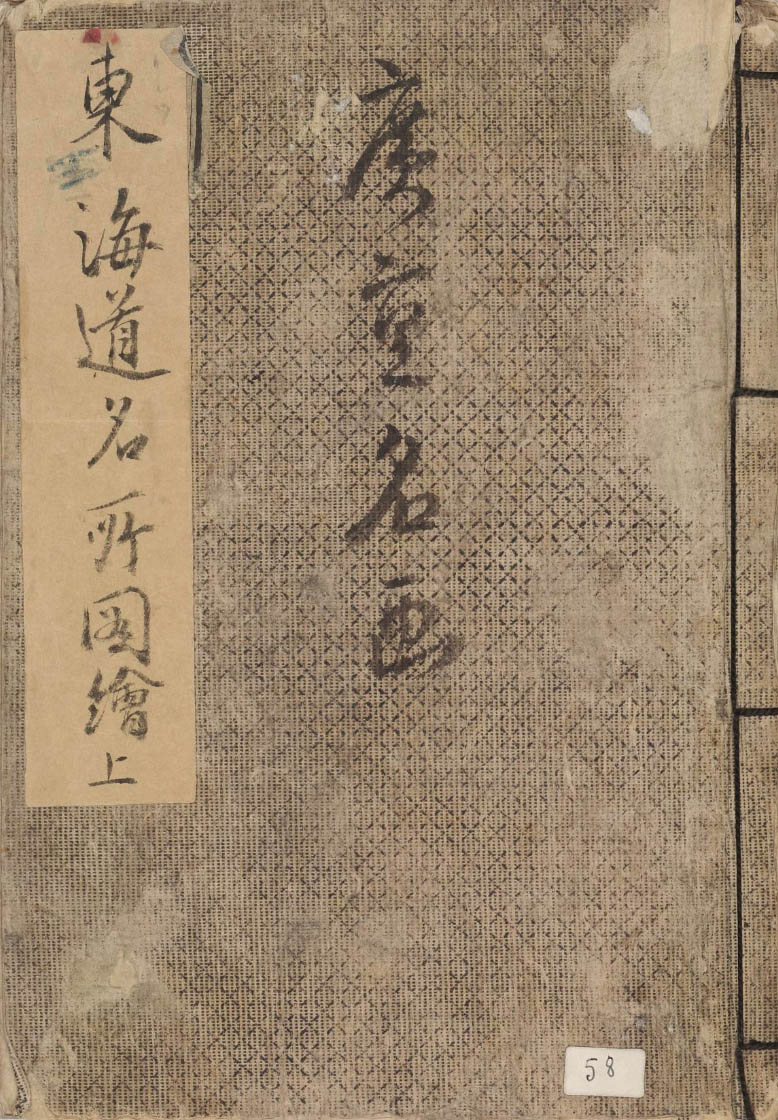 廣重名画
東海道名所图繪上
58